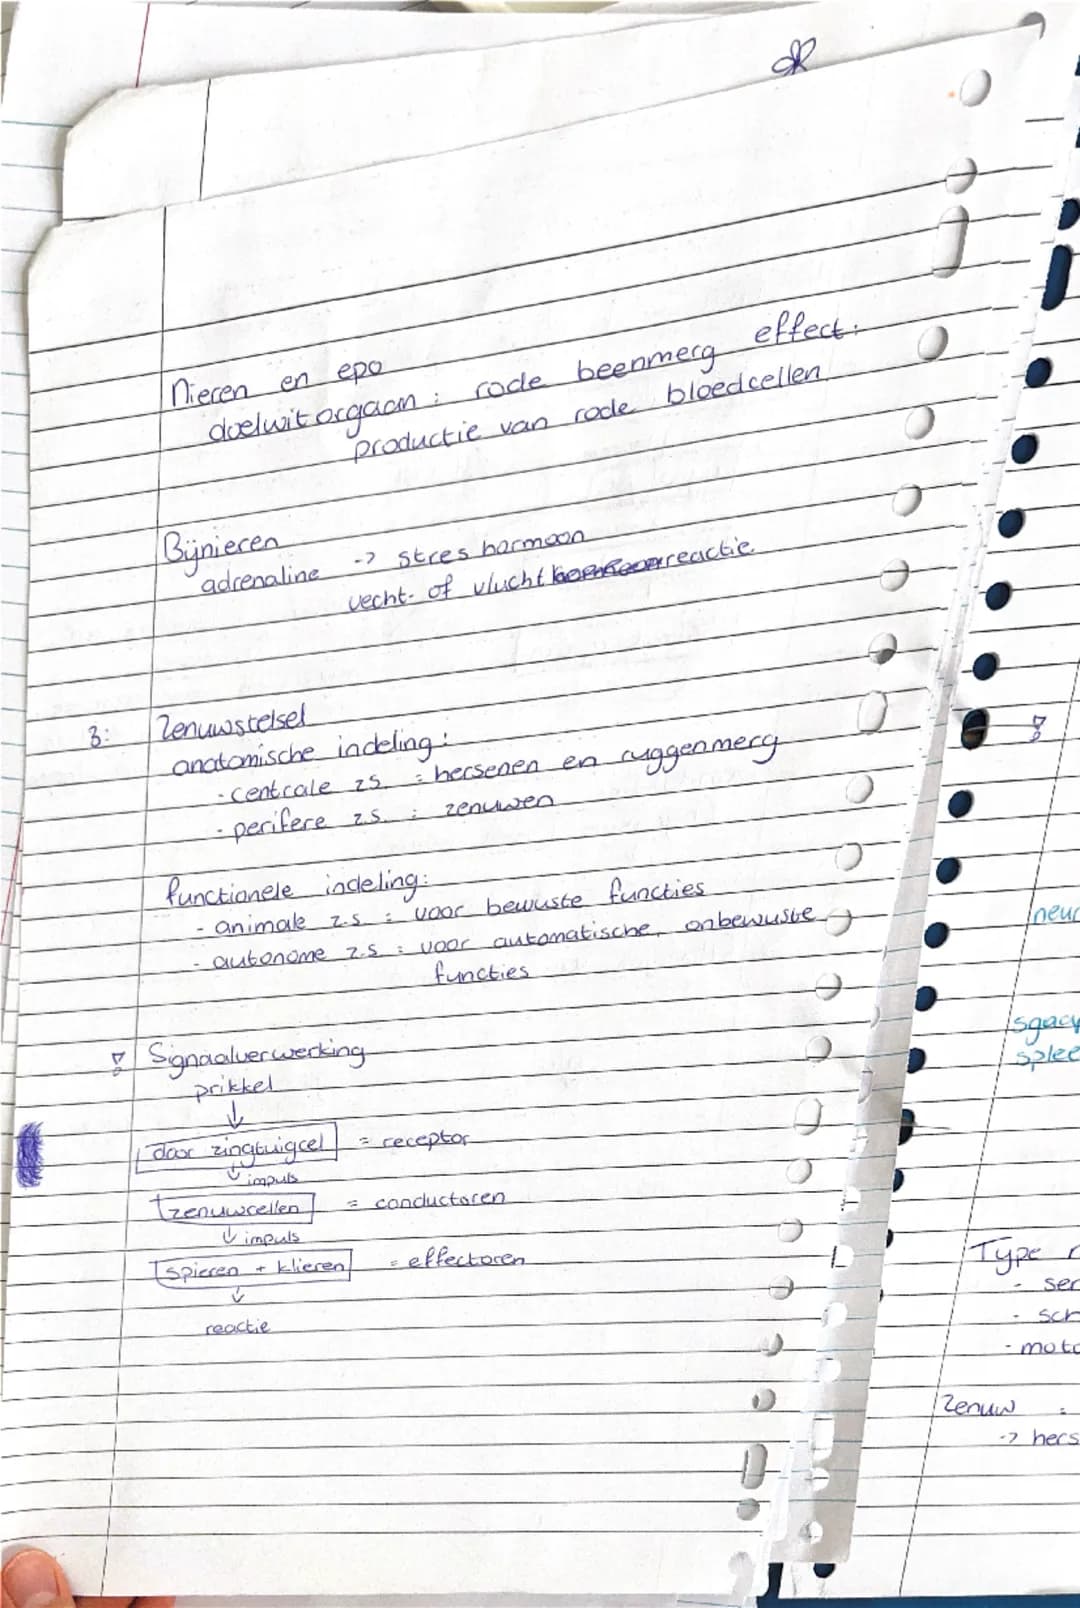 Nieren en epo
doelwitorgaan : rode beenmerg effect:
productie van rode bloedcellen
Bijnieren
adrenaline -> stres hormoon
vecht- of vlucht reactie
3: Zenuwstelsel
anatomische indeling:
- centrale zs. : hersenen en ruggenmerg
- perifere z.s. : zenuwen
functionele indeling:
- animale z.s : voor bewuste functies
- autonome z.s : voor automatische, onbewuste
functies
Signaalverwerking
prikkel
↓
door zingtuigcel = receptor
↓ impuls
zenuwcellen = conductoren
↓ impuls
spieren + klieren = effectoren
↓
reactie
neur
sgacy
splee
Type
- ser
- sch
- moto
Zenuw :
-> hers